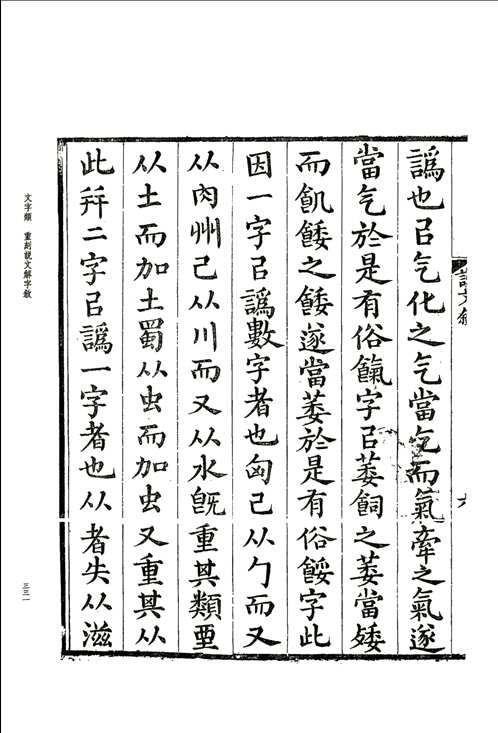 譌也㠯气化之气當气而氣牽之氣遂
當气於是有俗餼字㠯萎飼之萎當矮
而飢餧之餧遂當萎於是有俗餒字此
因一字㠯譌數字者也匈已从勹而又
从肉州已从川而又从水旣重其類亜
从土而加土蜀从虫而加虫又重其从
此幷二字㠯譌一字者也从者失从滋
文字類 重刻說文解字敘
三三一